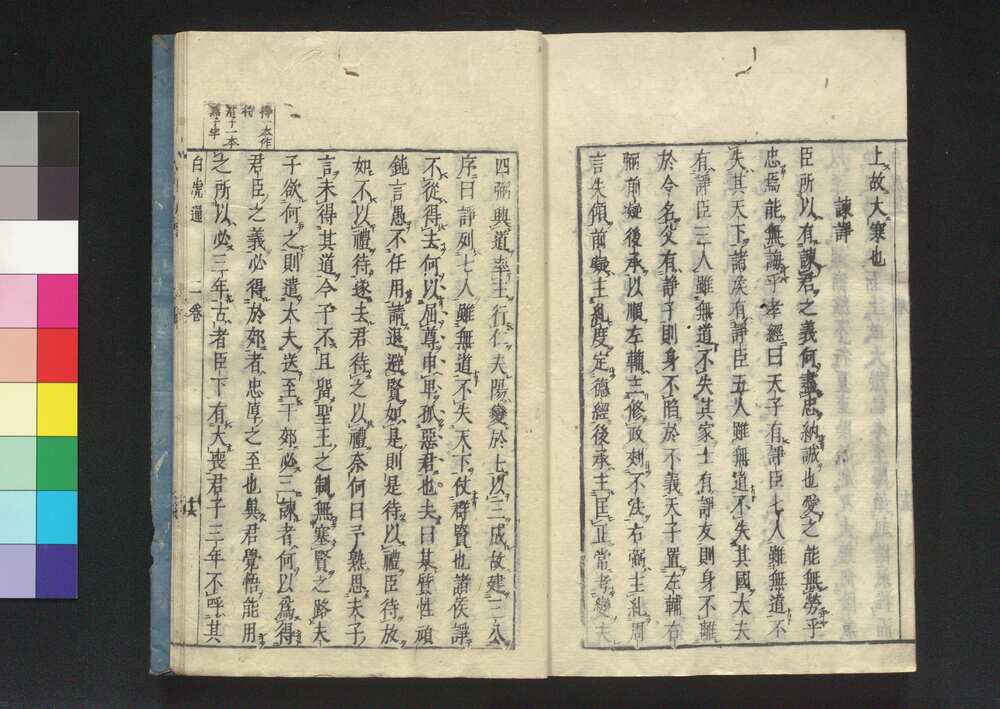 上故大寒也
諫諍
臣所以有諫君之義何盡忠納誠也愛之能無勞乎
忠焉能無誨乎孝經曰天子有諍臣七人雖無道不
失其天下諸侯有諍臣五人雖無道不失其國大夫
有諍臣三人雖無道不失其家士有諍友則身不離
於令名父有諍子則身不陷於不義天子置左輔右
弼前疑後承以順左輔主修政刺不法右弼主糺周
言失傾前疑主糺度定德經後承主匡正常考變夫
四弼興道率主行仁夫陽變於七以三成故建三公
序曰諍列七人雖無道不失天下仗群賢也諸侯諍
不從得去何以屈尊申卑孤惡君也夫曰某質性頑
鈍言愚不任用請退避賢如是則是待以禮臣待放
如不以禮待遂去君待之以禮奈何曰予熟思夫子
言未得其道今子不且留聖王之制無塞賢之路夫
子欲何之則遣大夫送至于郊必三諫者何以爲得
君臣之義必得於郊者忠厚之至也與君覺悟能用
之所以必三年古者臣下有大喪君子三年不呼其
白虎通 二卷
得一本作
待